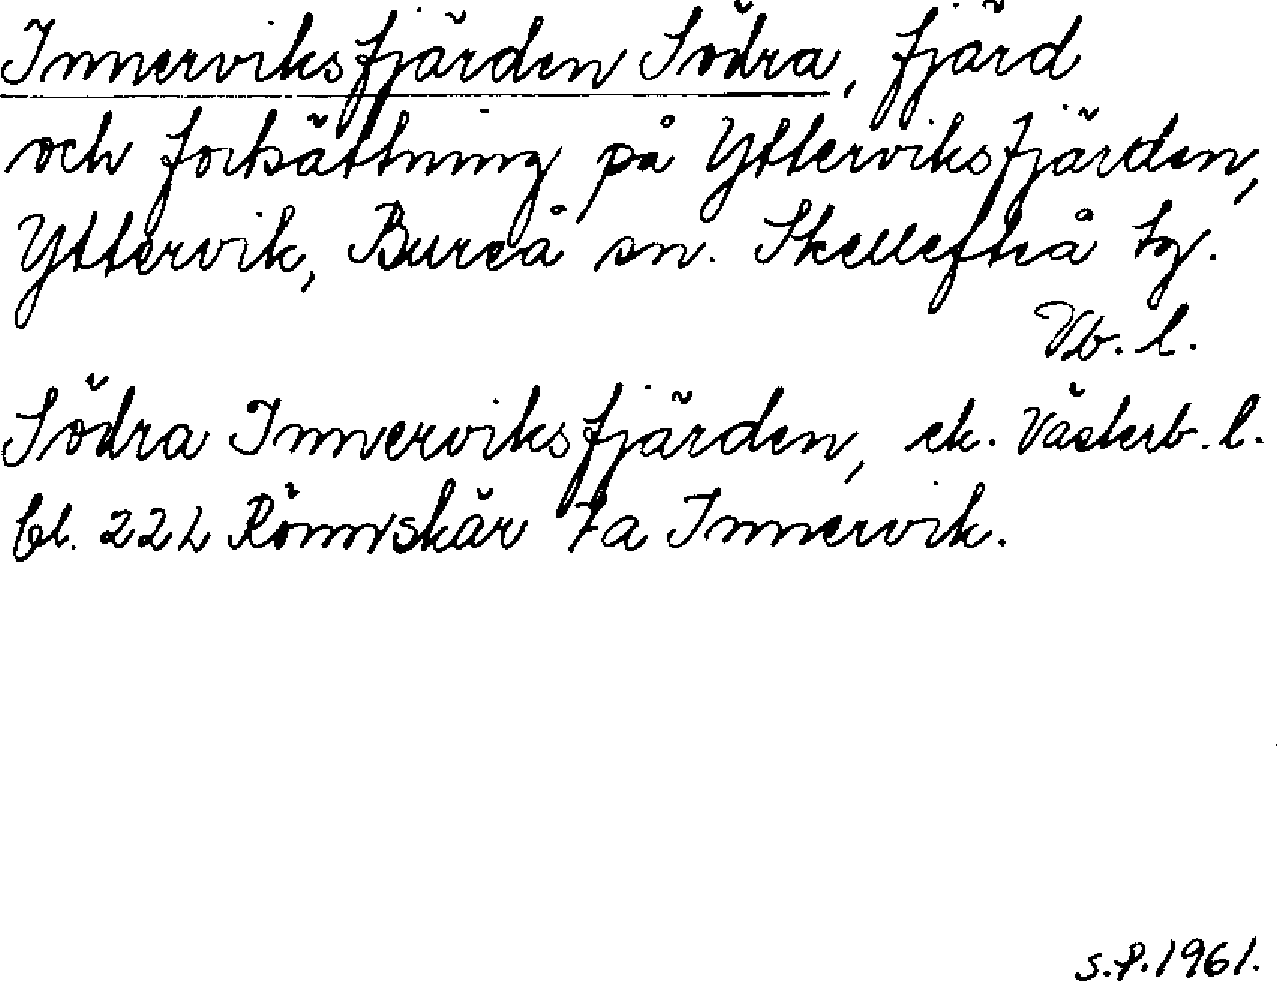 Innerviksfjärden Södra, fjärd
och fortsättning på Ytterviksfjärden,
Yttervik, Bureå sn. Skellefteå tg.
Vb. l.
Södra Innerviksfjärden, ek. Västerb. l.
bl. 22 L Rönnskär 7a Innervik.
S.P. 1961.